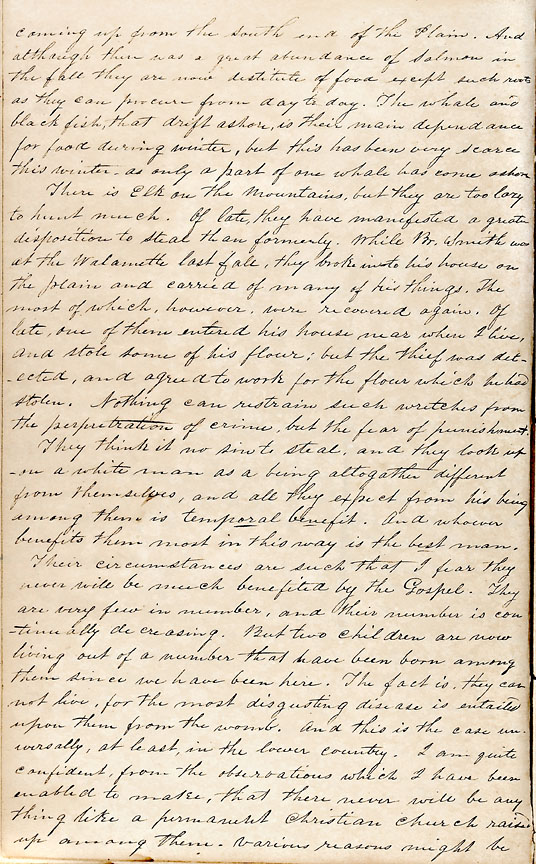 coming up from the south end of the Plain. And
although there was a great abundance of Salmon in
the fall they are now destitute of food except such roots
as they can procure from day to day. The whale and
black fish, that drift ashore, is their main dependance
for food during winter, but this has been very scarce
this winter - as only a part of one whale has come ashore
There is Elk on the Mountains, but they are too lazy
to hunt much. Of late, they have manifested a greater
disposition to steal than formerly. While Br. Smith was
at the Walamette last fall, they broke into his house on
the plain and carried of many of his things. The
most of which, however, were recovered again. Of
late, one of them entered his house near where I live,
and stole some of his flour; but the thief was det-
-ected, and agreed to work for the flour which he had
stolen. Nothing can restrain such wretches from
the perpretration of crime, but the fear of punishment.
They think it no sin to steal, and they look up
-on a white man as a being altogather different
from themselves, and all they expect from his being
among them is temporal benefit. And whoever
benefits them most in this way is the best man.
Their circumstances are such that I fear they
never will be much benefited by the Gospel. They
are very few in number, and their number is con
-tinually decreasing. But two children are now
living out of a number that have been born among
them since we have been here. The fact is, they can
not live, for the most disgusting disease is entailed
upon them from the womb. And this is the case un-
iversally, at least, in the lower country. I am quite
confident, from the observations which I have been
enabled to make, that there never will be any
thing like a permanent Christian church raised
up among them - various reasons might be